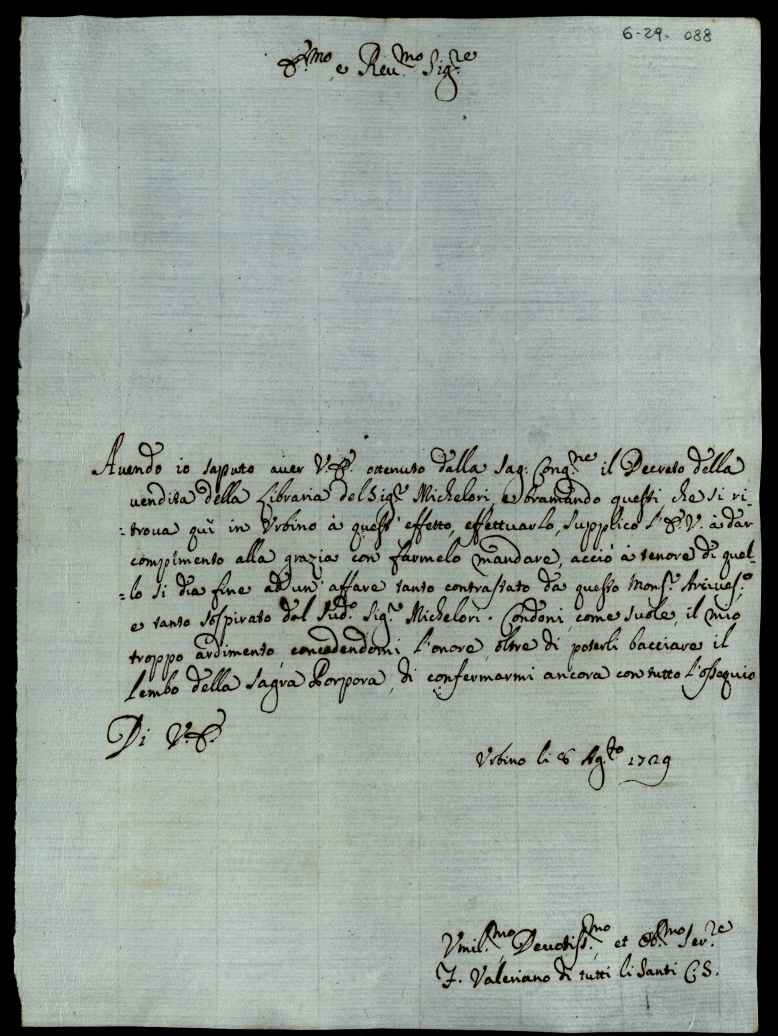 6-29- 088
E.mo e Reu.mo Sig.re
Auendo io saputo auer V.E. ottenuto dalla Sag: Cong.ne il Decreto della
vendita della Libraria del Sig.r Michelori, e bramando questi che si ri-
=troua quì in Vrbino à quest' effetto, effettuarlo, supplico l'E.V. à dar
compimento alla grazia con farmelo mandare, acciò à tenore di quel-
=lo si dia fine ad un' affare tanto contrastato da questo Mons.r Arciues.o
e tanto sospirato dal Sud.o Sig.r Michelori. Condoni, come suole, il mio
troppo ardimento, concedendomi l'onore, oltre di poterli bacciare il
lembo della Sagra Porpora, di confermarmi ancora con tutto l'ossequio
Di V.E.
Vrbino li 8 Ag.to 1729
Vmil.mo Deuotiss.mo et Ob.mo Ser.re
F. Valeriano di tutti li Santi C.S.